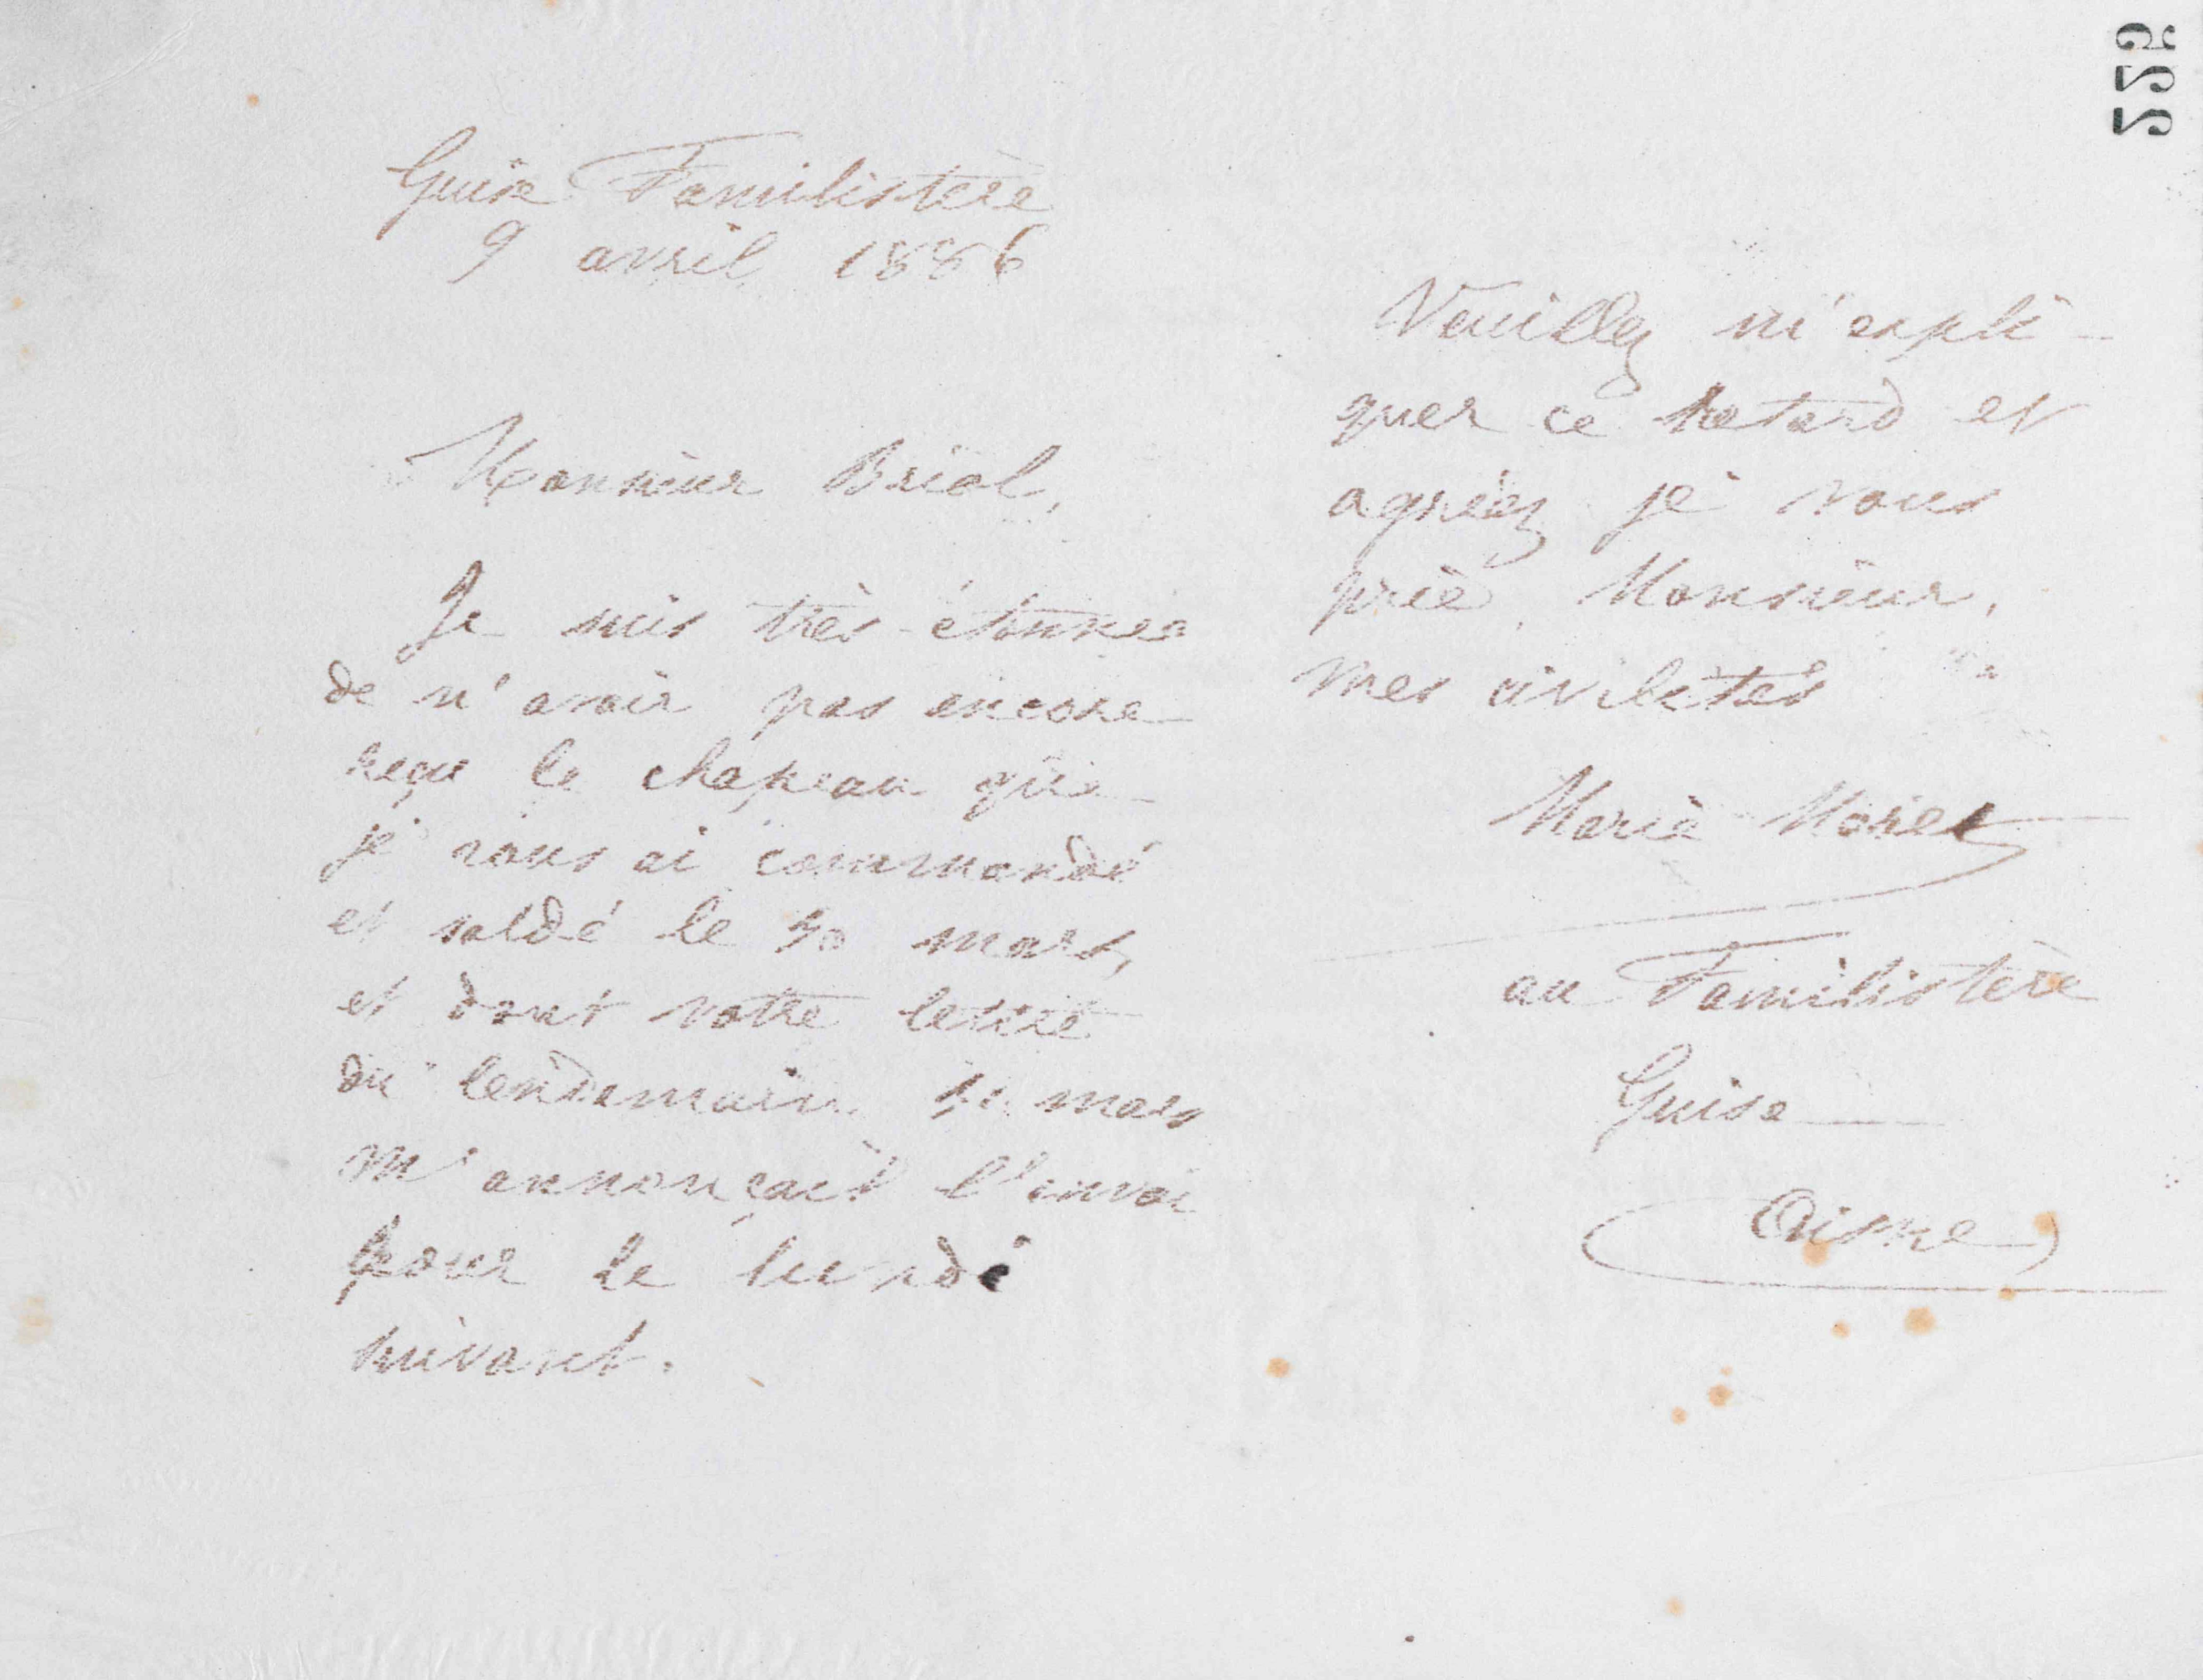 Guise Familistère
9 avril 1886
Monsieur Briol,
Je suis très étonnée
de n'avoir pas encore
reçu le chapeau que
je vous ai commandé
et soldé le 30 mars,
et dont votre lettre
du lendemain 31 mars
m'annonçait l'envoi
pour le lundi
suivant.
Veuillez m'expli-
quer ce retard et
agréez je vous
prie, Monsieur,
mes civilités
Marie Moret
au Familistère
Guise
Aisne
222